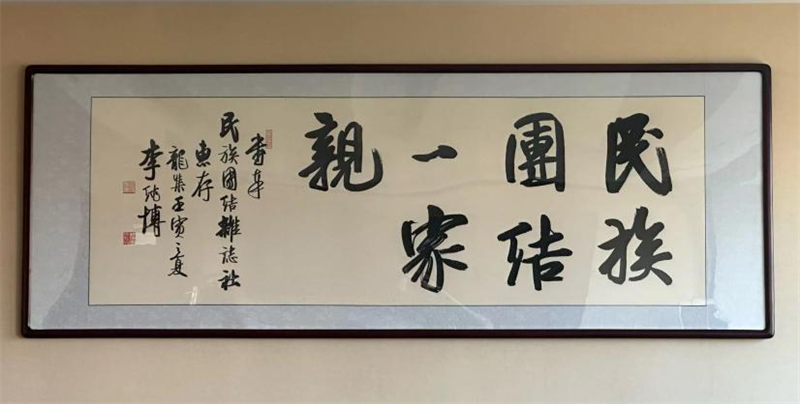 民族
團结
一家
親
民族團结雜誌社
惠存
龍集壬寅之夏
李
博